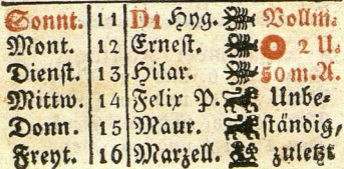 Sonnt. 11 D1 Hyg. Vollm.
Mont. 12 Ernest. 2 U.
Dienst. 13 Hilar. 50 m. A.
Mittw. 14 Felix P. Unbe-
Donn. 15 Maur. ständig,
Freyt. 16 Marzell. zuletzt